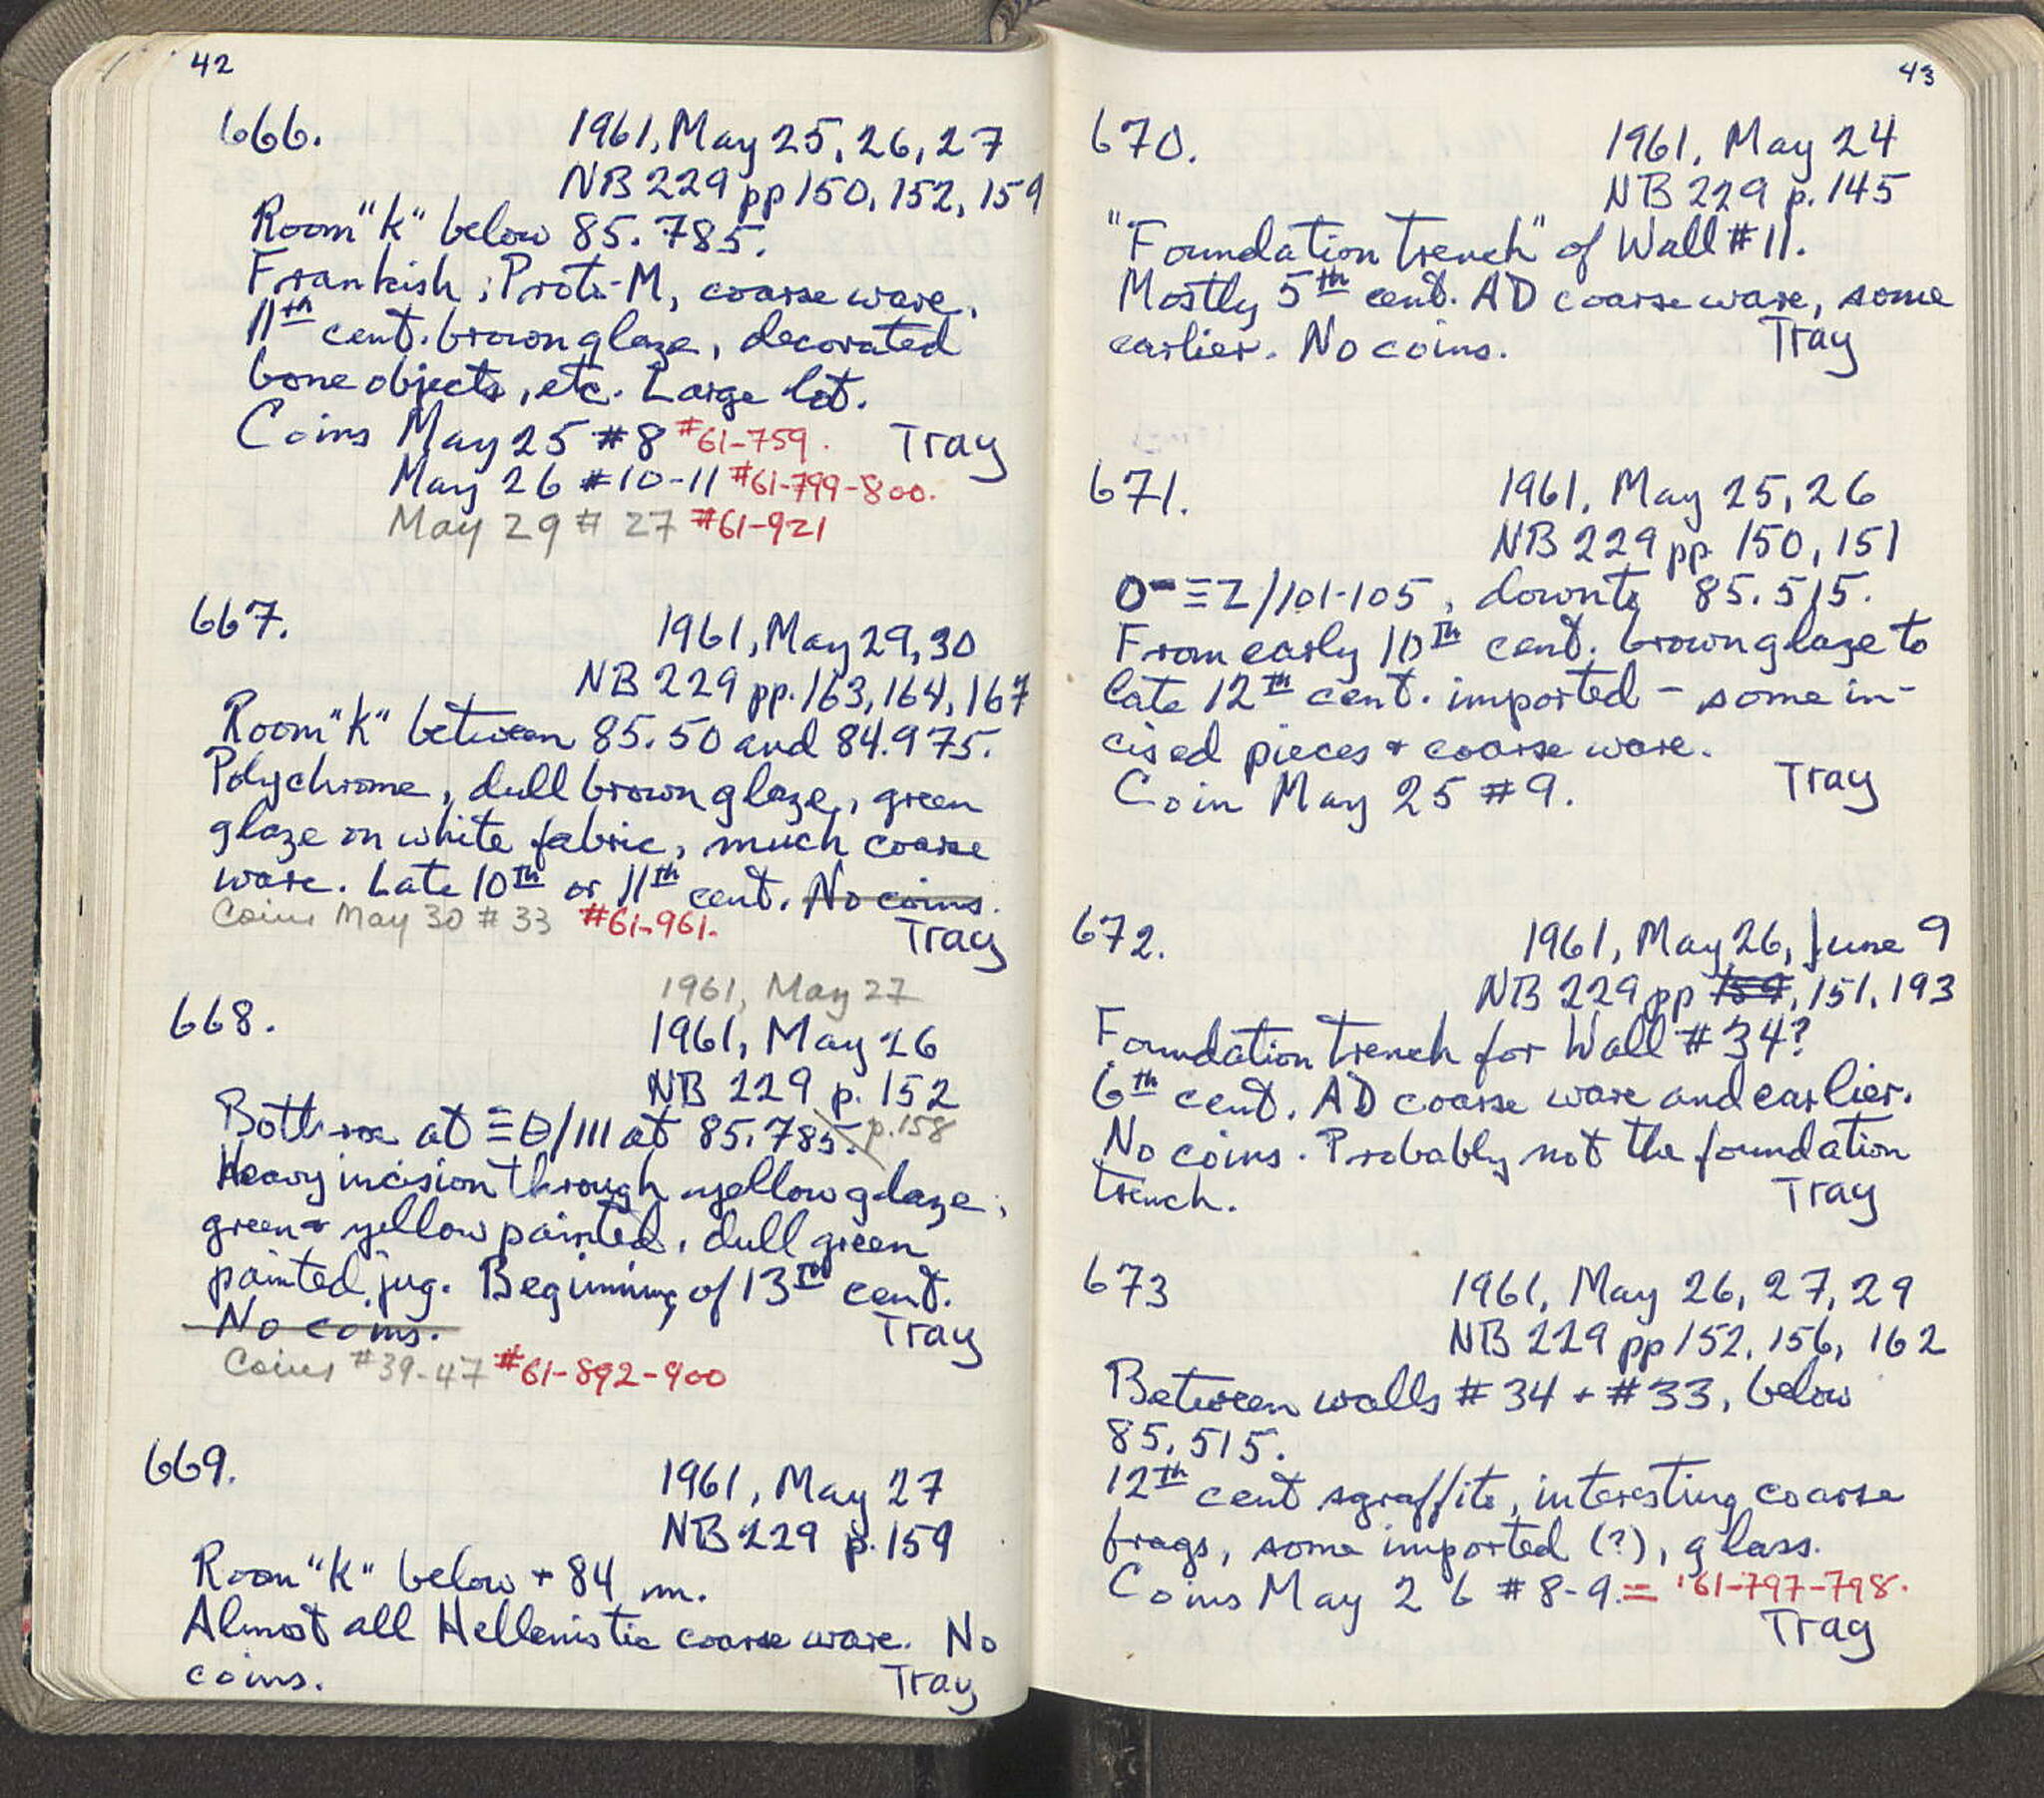 42
666.
1961, May 25, 26, 27
NB 229 pp 150, 152, 159
Room "K" below 85.785.
Frankish, Proto-M, coarse ware,
11th cent. brown glaze, decorated
bone objects, etc. Large lot.
Coins May 25 #8 #61-759. Tray
May 26 #10-11 #61-799-800.
May 29 # 27 #61-921
667.
1961, May 29, 30
NB 229 pp. 163, 164, 167
Room "K" between 85.50 and 84.975.
Polychrome, dull brown glaze, green
glaze on white fabric, much coarse
ware. Late 10th or 11th cent. No coins.
Coins May 30 # 33 #61-961.
Tray
1961, May 27
668.
1961, May 26
NB 229 p. 152
p. 158
at ΞΘ/111 at 85.785.
Heavy incision through yellow glaze,
green + yellow painted, dull green
painted jug. Beginning of 13th cent.
No coins. Tray
Coins #39-47 #61-892-900
669.
1961, May 27
NB 229 p. 159
Room "K" below + 84 m.
Almost all Hellenistic coarse ware. No
coins. Tray
43
670.
1961, May 24
NB 229 p. 145
"Foundation trench" of Wall #11.
Mostly 5th cent. AD coarse ware, some
earlier. No coins. Tray
671.
1961, May 25, 26
NB 229 pp 150, 151
O-ΞZ/101-105, down to 85.515.
From early 10th cent. brown glaze to
late 12th cent. imported - some in-
cised pieces + coarse ware.
Coin May 25 #9. Tray
672.
1961, May 26, June 9
NB 229 pp 159, 151, 193
Foundation trench for Wall #34?
6th cent. AD coarse ware and earlier.
No coins. Probably not the foundation
trench. Tray
673
1961, May 26, 27, 29
NB 229 pp 152, 156, 162
Between walls #34 + #33, below
85.515.
12th cent sgraffito, interesting coarse
frags, some imported (?), glass.
Coins May 26 #8-9. = '61-797-798.
Tray